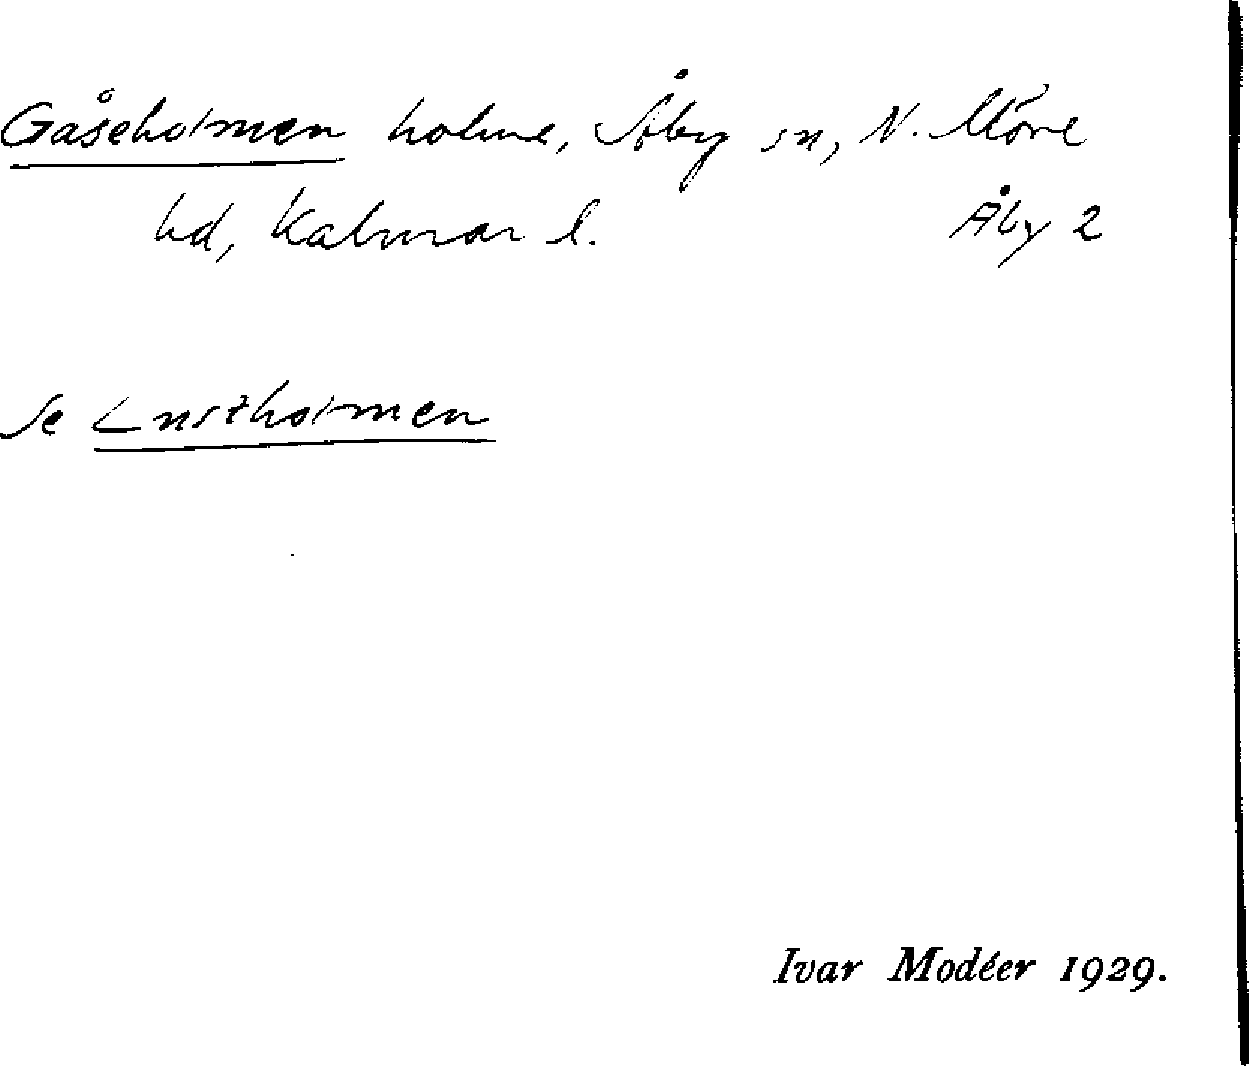 Gåseholmen holme, Åby sn, N. Möre
hd, Kalmar l. Åby 2
Se Lustholmen
Ivar Modéer 1929.